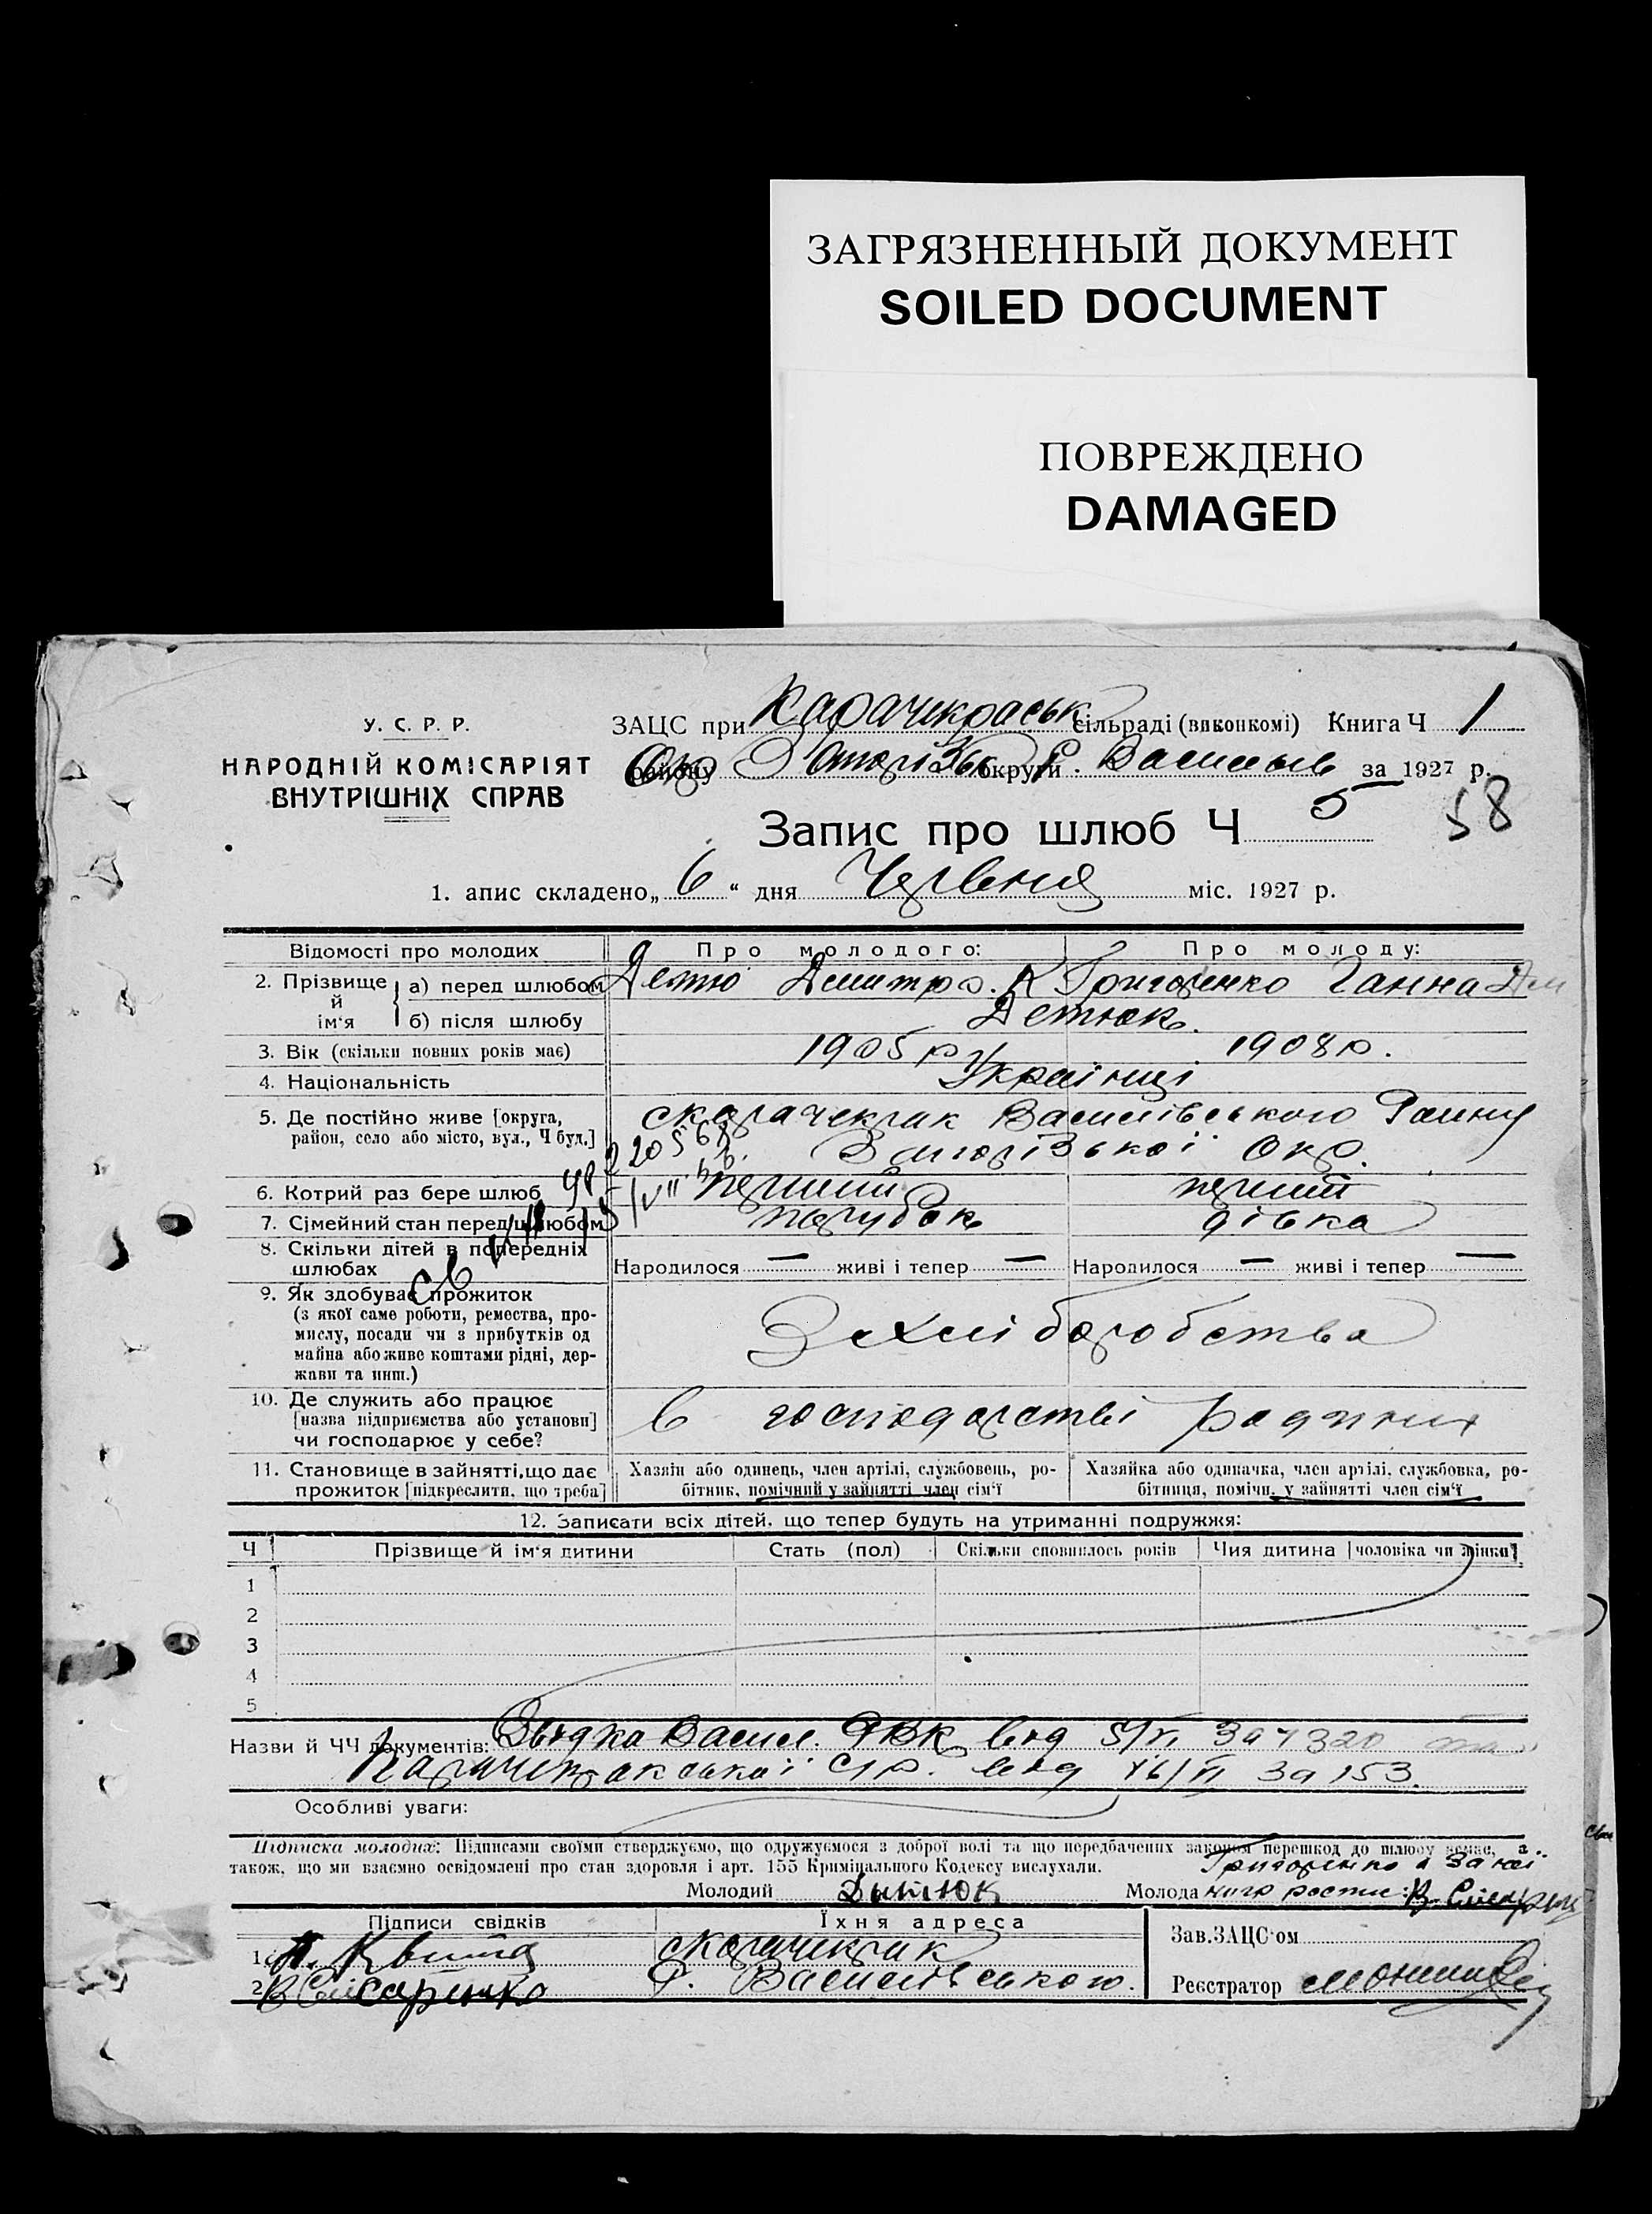 ЗАГРЯЗНЕННЫЙ ДОКУМЕНТ
SOILED DOCUMENT
ПОВРЕЖДЕНО
DAMAGED
У. С. Р. Р.
НАРОДНІЙ КОМІСАРІЯТ
ВНУТРІШНІХ СПРАВ
ЗАЦС при Карачекраськ сільраді (виконкомі) Книга Ч 1
району округи за 1927 р.
Запис про шлюб Ч 5
58
1. апис складено „ 6 “ дня Червня міс. 1927 р.
Відомості про молодих Про молодого: Про молоду:
2. Прізвище й ім‘я а) перед шлюбом Дмитро. К Григоренко Ганна
б) після шлюбу Детюк.
3. Вік (скільки повних років має) 1905 р 1908 р.
4. Національність Українці
5. Де постійно живе [округа, район, село або місто, вул., Ч буд.] Василівського Району
Запорізької Окр.
6. Котрий раз бере шлюб перший перший
7. Сімейний стан перед шлюбом парубок дівка
8. Скільки дітей в попередніх шлюбах Народилося — живі і тепер — Народилося — живі і тепер —
9. Як здобуває прожиток
(з якої саме роботи, ремества, про-
мислу, посади чи з прибутків од
майна або живе коштами рідні, дер-
жави та инш.)
З хліборобства
10. Де служить або працює
[назва підприємства або установи]
чи господарює у себе?
в господарстві
11. Становище в зайнятті, що дає прожиток [підкреслити, що треба]
Хазяїн або одинець, член артілі, службовець, ро-
бітник, помічний у зайнятті член сім‘ї
Хазяйка або одиначка, член артілі, службовка, ро-
бітниця, помічн. у зайнятті член сім‘ї
12. Записати всіх дітей, що тепер будуть на утриманні подружжя:
Ч Прізвище й ім‘я дитини Стать (пол) Скільки сповнилось років Чия дитина [чоловіка чи жінки]
1
2
3
4
5
Назви й ЧЧ документів: Васил. РВК від 5/VI за 4320
від за 153.
Особливі уваги:
Підписка молодих: Підписами своїми стверджуємо, що одружуємося з доброї волі та що передбачених законом перешкод до шлюбу немає, а
також, що ми взаємно освідомлені про стан здоровля і арт. 155 Кримінального Кодексу вислухали.
Григоренко а за неї
Молодий Молода
Підписи свідків Їхня адреса
Зав.ЗАЦС‘ом
1.
2. В Слісаренко Р. Василівського.
Реєстратор